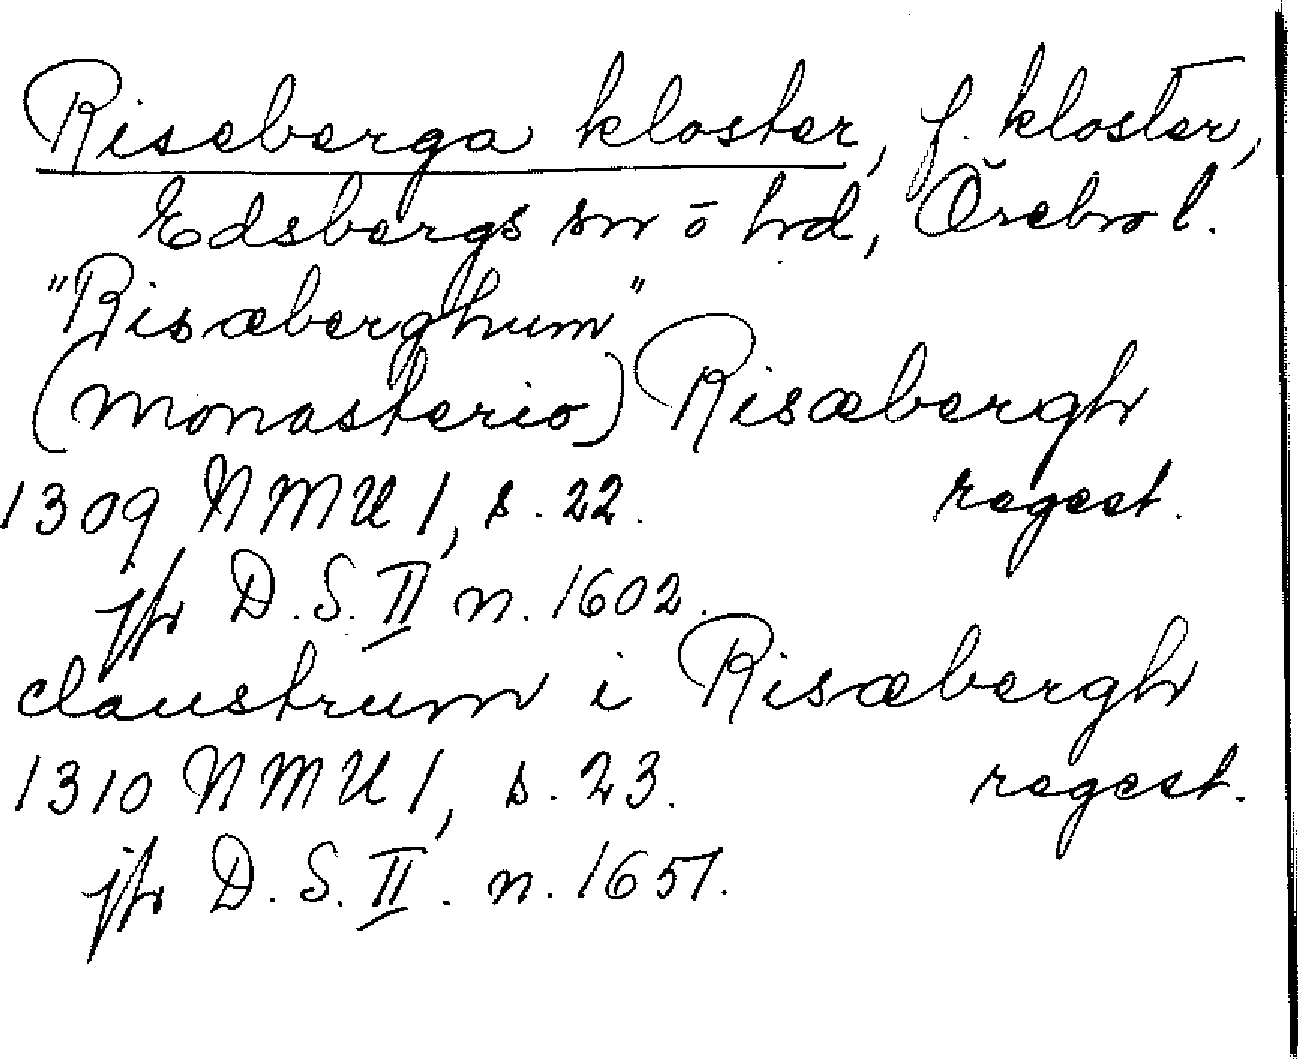 Riseberga kloster, f. kloster,
Edsbergs sn o hd, Örebro l.
"Risæberghum"
(monasterio) Risæbergh
1309 NMU 1, s. 22. regest.
jfr D. S. II n. 1602.
claustrum i Risæbergh
1310 NMU 1, s. 23. regest.
jfr D. S. II. n. 1651.